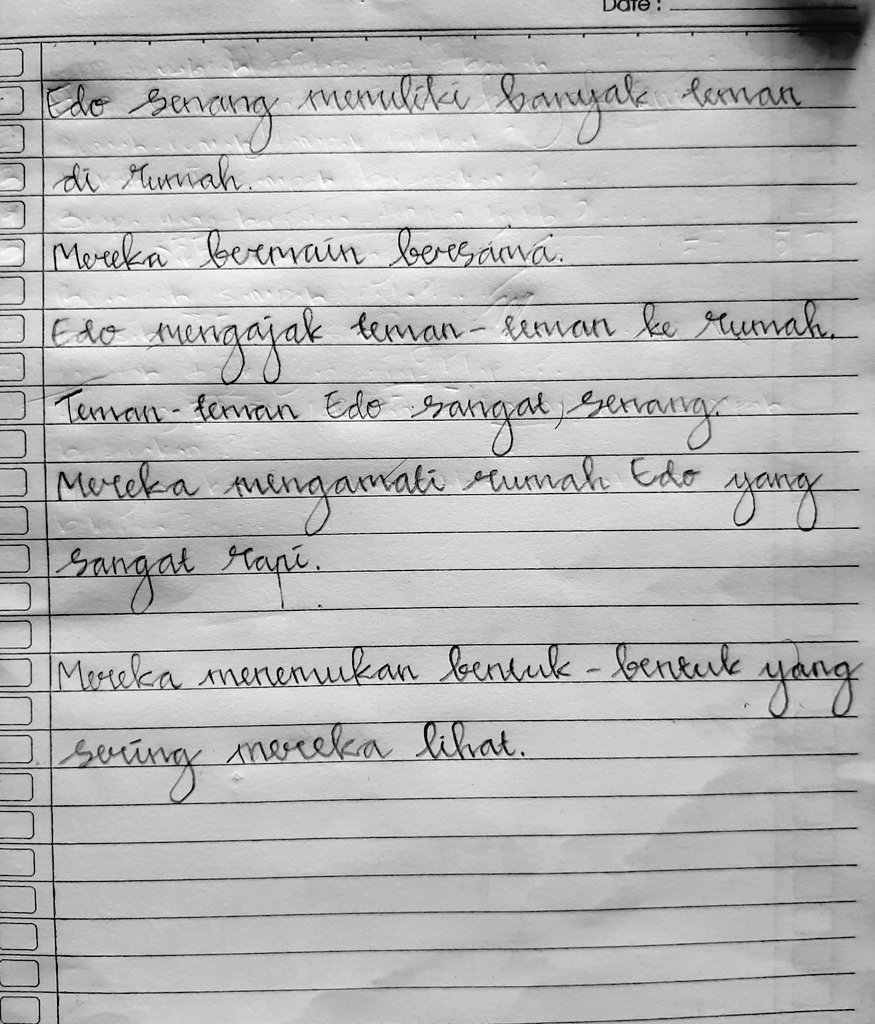 Date :
Edo senang memiliki banyak teman
di rumah.
Mereka bermain bersama.
Edo mengajak teman-teman ke rumah.
Teman-teman Edo sangat senang.
Mereka mengamati rumah Edo yang
sangat rapi.
Mereka menemukan bentuk-bentuk yang
sering mereka lihat.